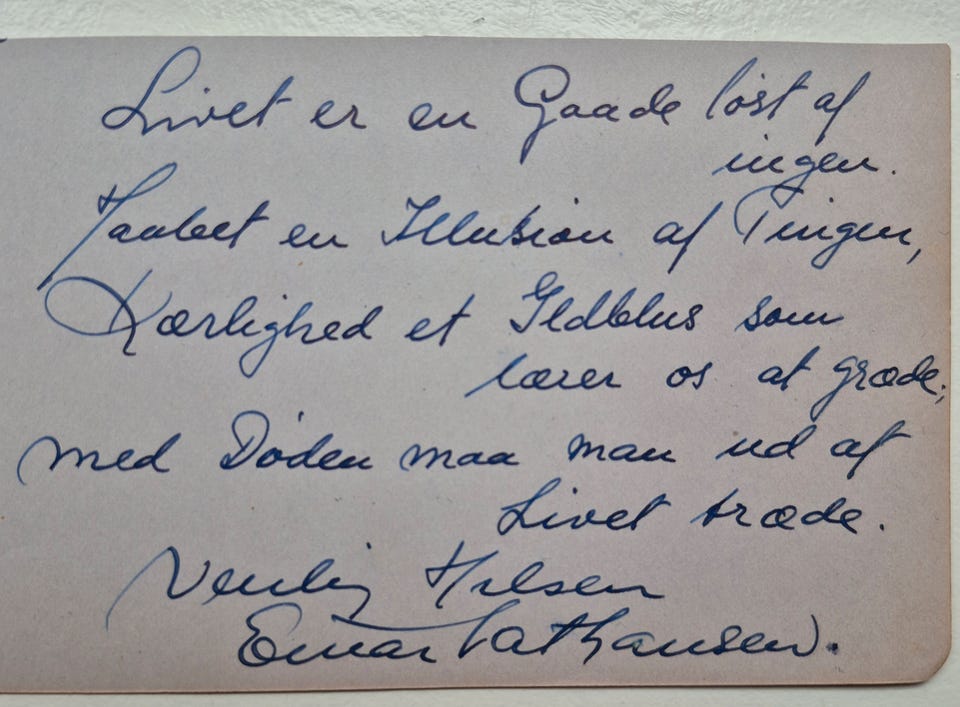 Livet er en Gaade løst af
ingen.
Haabet en Illusion af Tingen,
Kærlighed et Ildblus som
lærer os at græde;
med Døden maa man ud af
Livet træde.
Venlig Hilsen
Einar